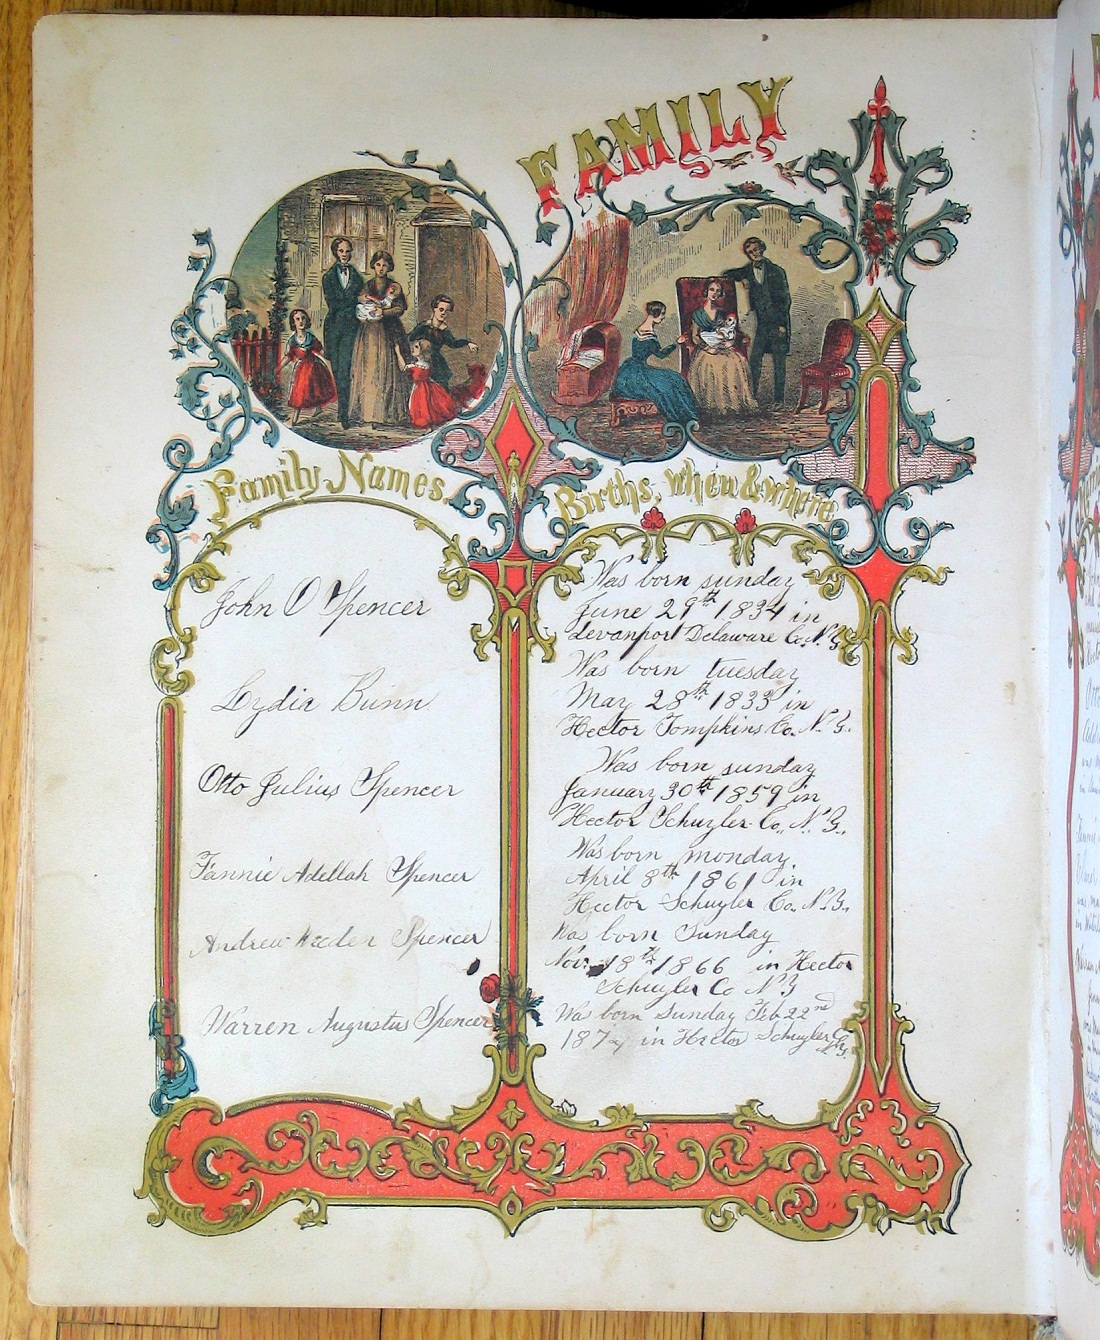 FAMILY
Family Names.
Births, when & where.
John O Spencer
Was born sunday
June 29th 1834 in
devonport Delaware Co. N.Y.
Lydia Bunn
Was born tuesday
May 28th 1833 in
Hector Tompkins Co. N.Y.
Otto Julius Spencer
Was born sunday
January 30th 1859 in
Hector Schuyler Co. N.Y.
Fannie Adellah Spencer
Was born monday.
April 8th 1861 in
Hector Schuyler Co. N.Y.
Andrew Spencer
Was born Sunday
Nov. 18th 1866 in Hector
Schuyler Co N.Y
Warren Augustus Spencer
Was born Sunday Feb 22nd
in Hector Schuyler Co
N.Y.